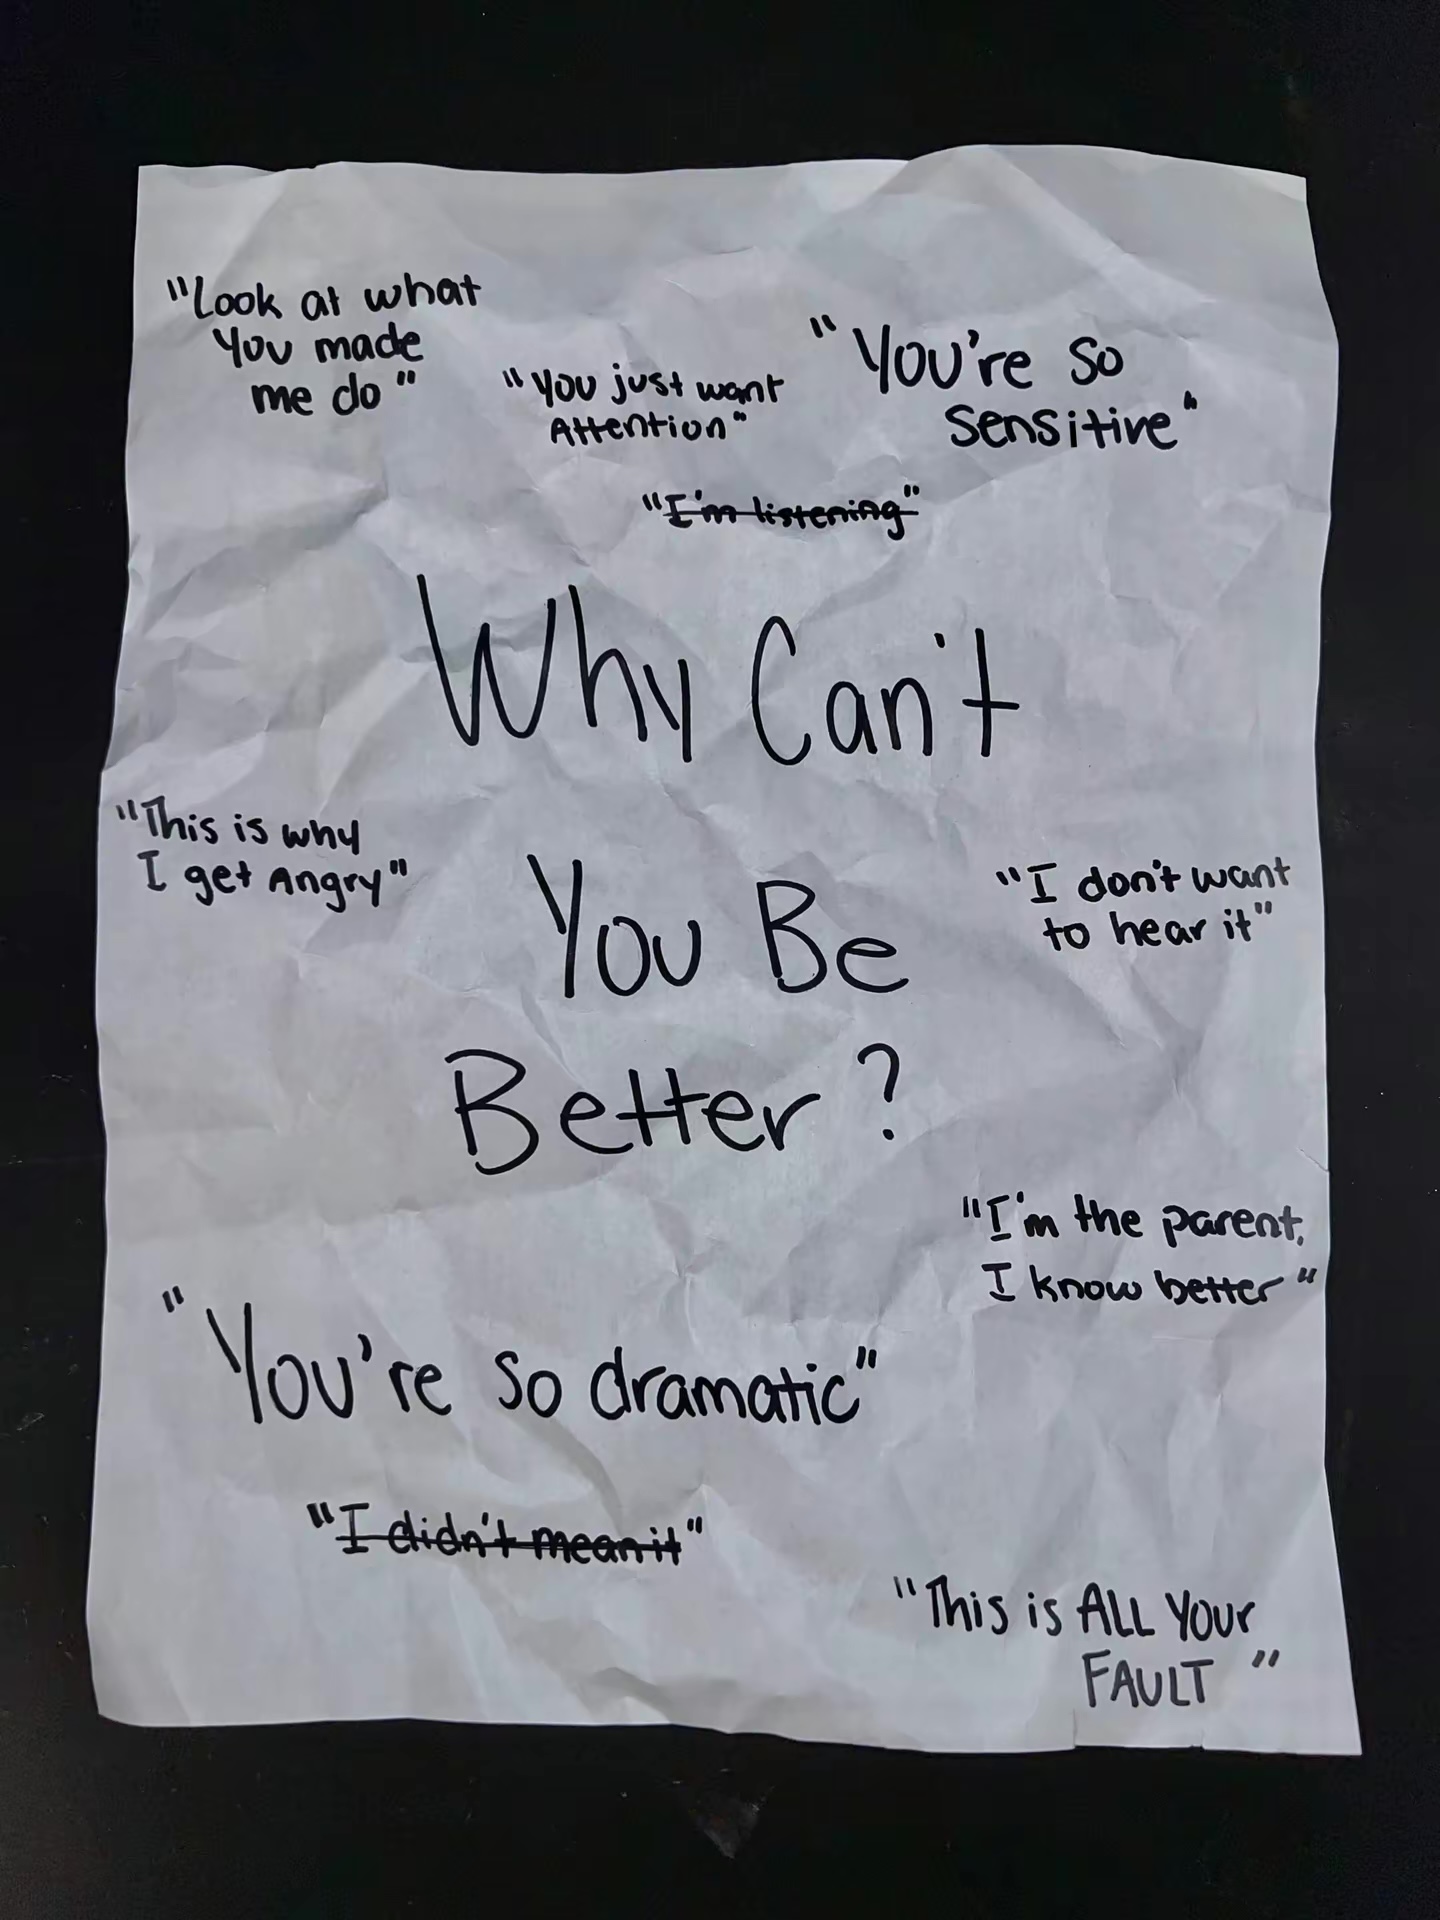 "Look at what
you made
me do"
"You just want
Attention"
"You're so
sensitive"
"I'm listening"
Why Can't
"This is why
I get Angry"
You Be
"I don't want
to hear it"
Better?
"I'm the parent,
I know better"
"You're so dramatic"
"I didn't mean it"
"This is ALL YOUr
FAULT"